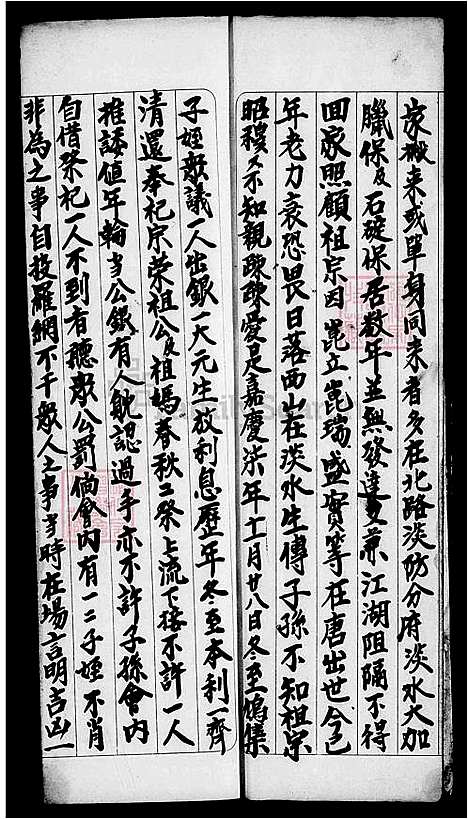 家搬来或單身同来者多在北路淡防分府淡水大加
臘保及石碇保居数年並無發達更兼江湖阻隔不得
回家照顧祖宗因崑立崑瑞盛實等在唐出世今已
年老力衰恐畏日落西山在淡水生傳子孫不知祖宗
昭穆又不知親疎疎愛是嘉慶柒年十一月廿八日冬至鳩集
子姪眾議一人出銀一大元生放利息歷年冬至本利一齊
清還奉祀宗榮祖公及祖媽春秋二祭上流下接不許一人
推諉值年輪當公銀有人躭認過手亦不許子孫會内
自借祭祀一人不到者聽眾公罰倘會内有一二子姪不肖
非為之事自投羅網不干眾人之事当時在塲言明吉凶一